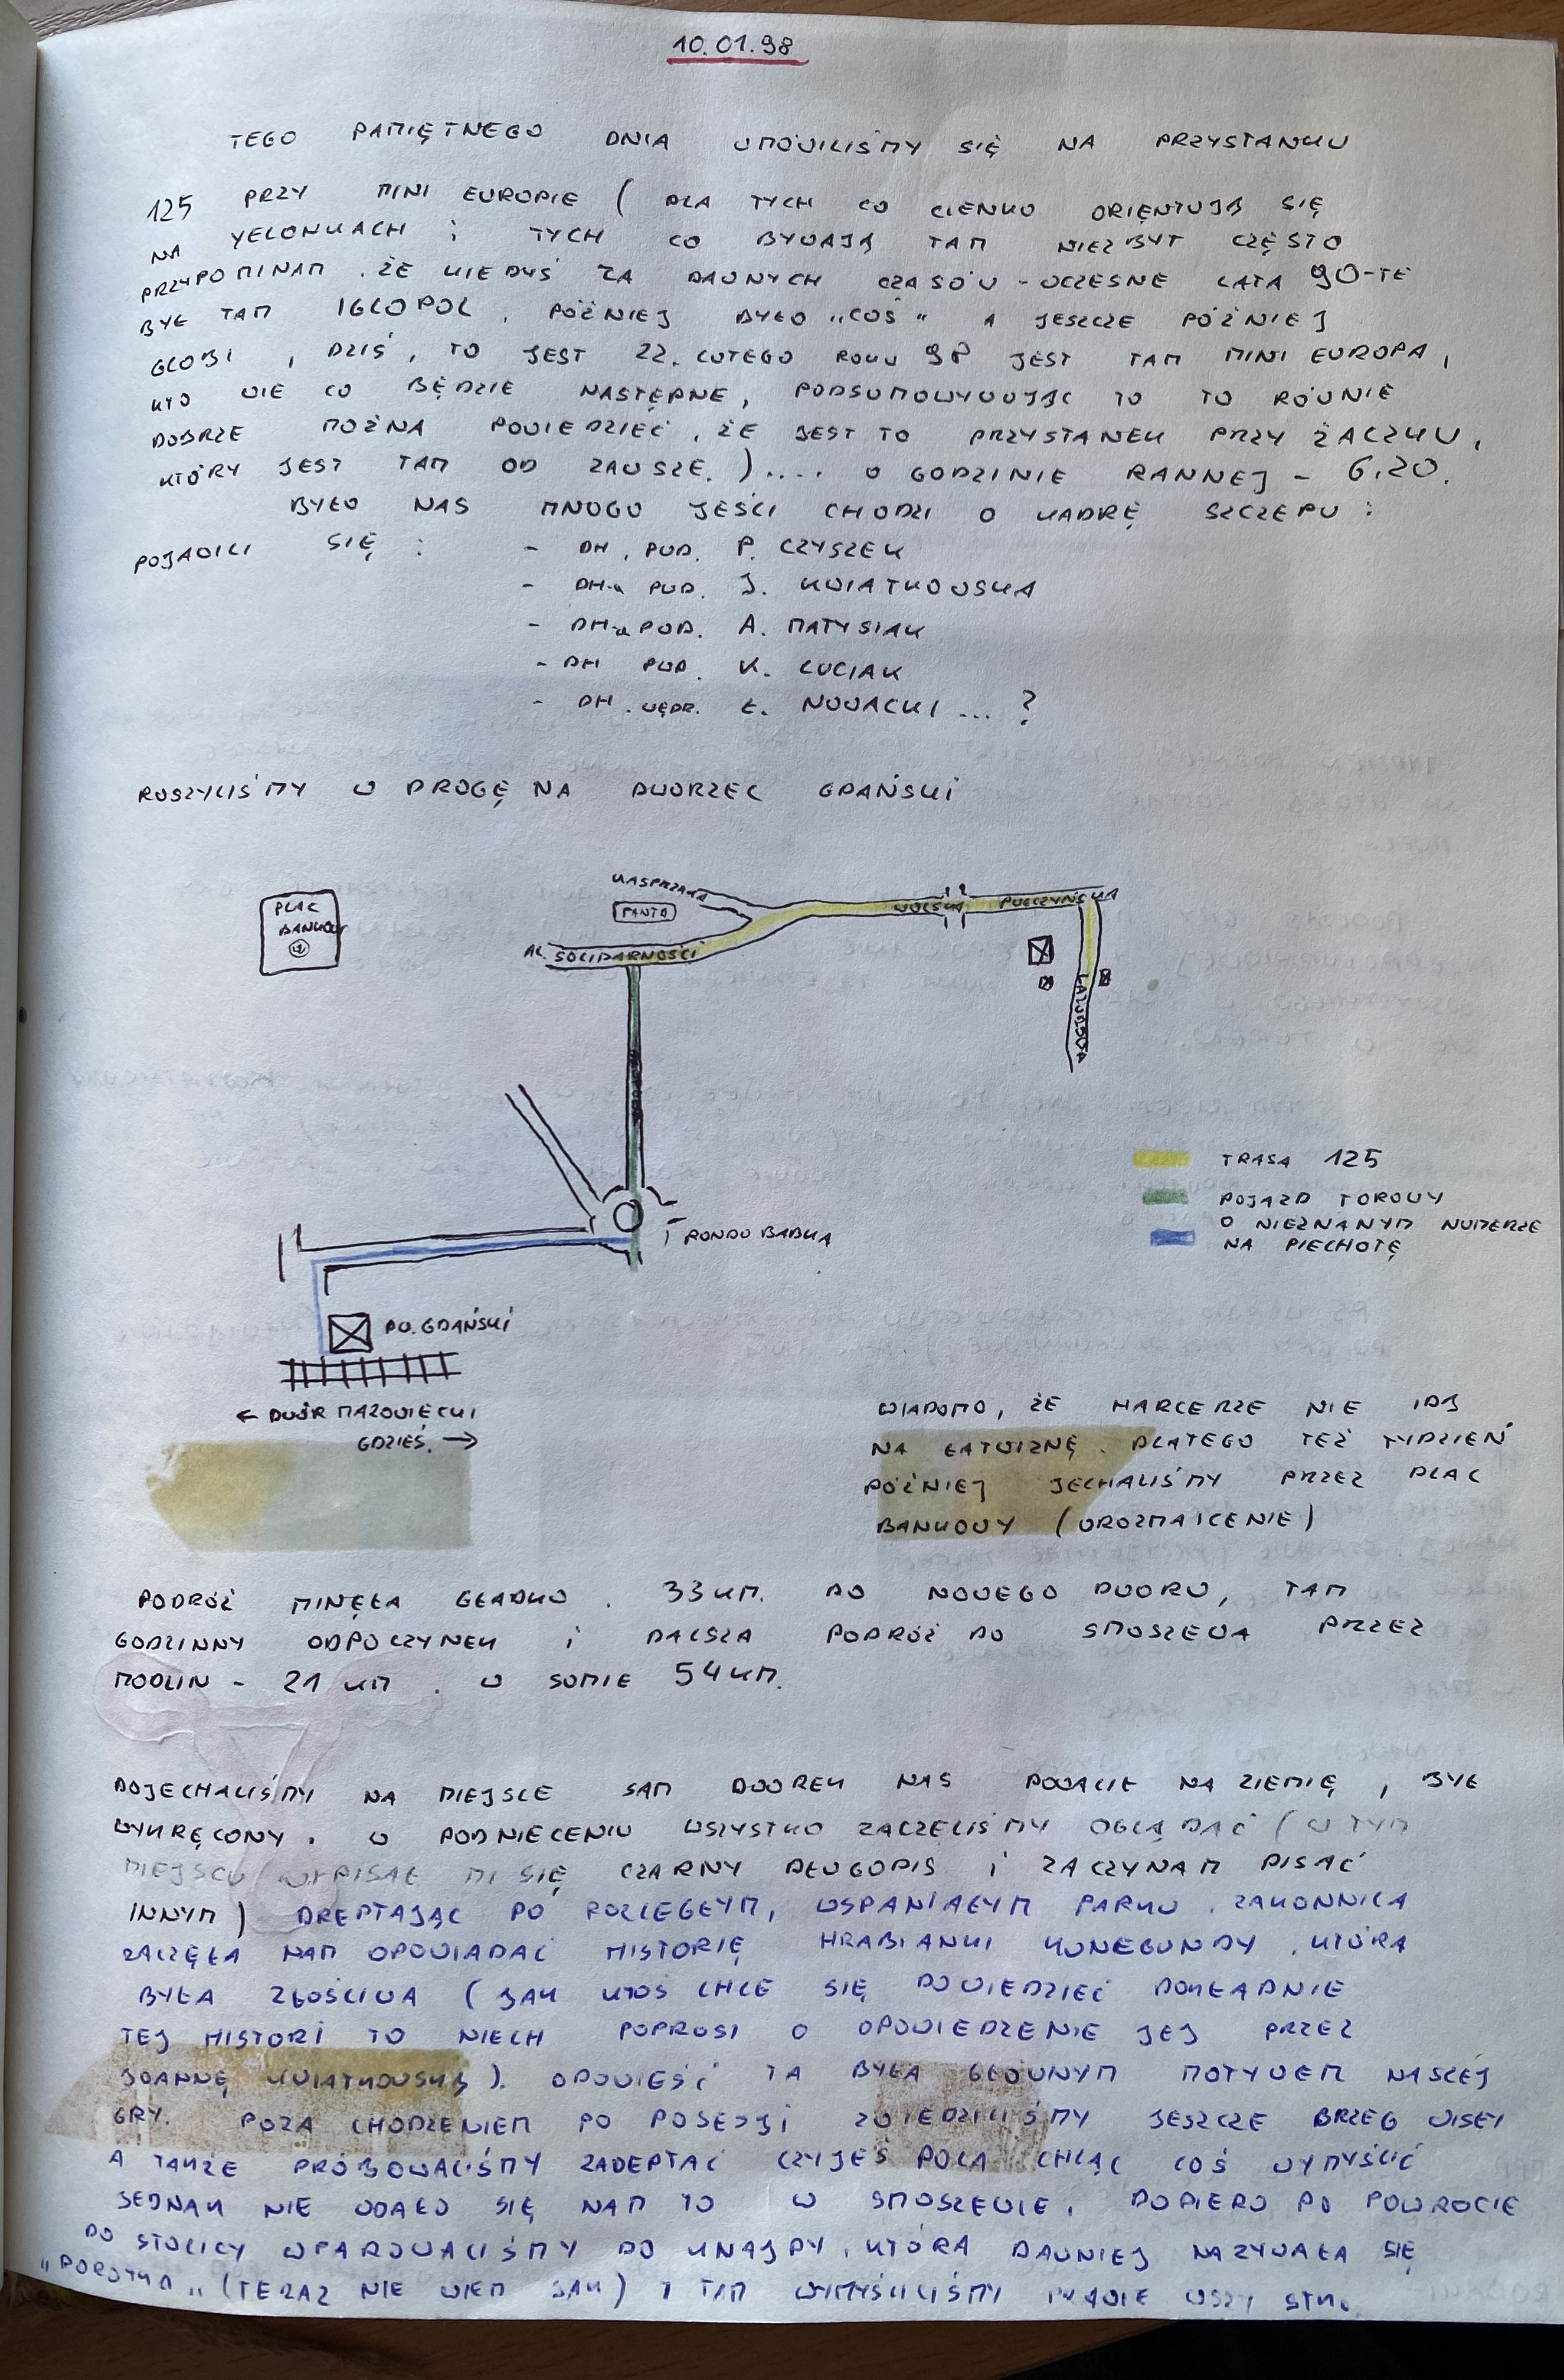 10.01.98
TEGO PAMIĘTNEGO DNIA UMÓWILIŚMY SIĘ NA PRZYSTANKU
125 PRZY MINI EUROPIE ( DLA TYCH CO CIENKO ORIĘNTUJĄ SIĘ
NA YELONKACH I TYCH CO BYWAJĄ TAM NIEZBYT CZĘSTO
PRZYPOMINAM, ŻE KIEDYŚ ZA DAWNYCH CZASÓW - WCZESNE LATA 90-TE
BYŁ TAM IGLOPOL, PÓŹNIEJ BYŁO „COŚ" A JESZCZE PÓŹNIEJ
GLOBI, DZIŚ, TO JEST 22. LUTEGO ROKU 98 JEST TAM MINI EUROPA,
KTO WIE CO BĘDZIE NASTĘPNE, PODSUMOWYWUJĄC TO TO RÓWNIE
DOBRZE MOŻNA POWIEDZIEĆ, ŻE JEST TO PRZYSTANEK PRZY ŻACZKU,
KTÓRY JEST TAM OD ZAWSZE.).... O GODZINIE RANNEJ - 6.20.
BYŁO NAS MNOGO JEŚLI CHODZI O KADRĘ SZCZEPU:
POJAWILI SIĘ : - DH. PWD. P. CZYSZEK
- DH-a PWD. J. KWIATKOWSKA
- DH-a POD. A. MATYSIAK
- DH PWD. K. LUCIAK
- DH. WĘDR. Ł. NOWACKI ... ?
RUSZYLIŚMY W DROGĘ NA DWORZEC GDAŃSKI
PLAC
BANKOWY
KASPRZAKA
FANTA
WOLSKA
POŁCZYŃSKA
AL. SOLIDARNOŚCI
ŁAZUROWA
TRASA 125
POJAZD TOROWY
O NIEZNANYM NUMERZE
NA PIECHOTĘ
RONDO BABKA
DW. GDAŃSKI
← DWÓR MAZOWIĘCKI
GDZIEŚ. →
WIADOMO, ŻE HARCERZE NIE IDĄ
NA ŁATWIZNĘ. DLATEGO TEŻ TYDZIEŃ
PÓŹNIEJ JECHALIŚMY PRZEZ PLAC
BANKOWY (UROZMAICENIE)
PODRÓŻ MINĘŁA GŁADKO. 33KM. DO NOWEGO DWORU, TAM
GODZINNY ODPOCZYNEK I DALSZA PODRÓŻ DO SMOSZEWA PRZEZ
MODLIN - 21 KM. W SUMIE 54KM.
DOJECHALIŚMY NA MIEJSCE SAM DWOREK NAS POWALIŁ NA ZIEMIĘ, BYŁ
WYKRĘCONY. W PODNIECENIU WSZYSTKO ZACZĘLIŚMY OGLĄDAĆ (W TYM
MIEJSCU WYPISAŁ MI SIĘ CZARNY DŁUGOPIS I ZACZYNAM PISAĆ
INNYM) DREPTAJĄC PO ROZLEGŁYM, WSPANIAŁYM PARKU. ZAKONNICA
ZACZĘŁA NAM OPOWIADAĆ HISTORIĘ HRABIANKI KUNEGUNDY, KTÓRA
BYŁA ZŁOŚLIWA (JAK KTOŚ CHCE SIĘ DOWIEDZIEĆ DOKŁADNIE
TEJ HISTORI TO NIECH POPROSI O OPOWIEDZENIE JEJ PRZEZ
JOANNĘ KWIATKOWSKĄ). OPOWIEŚĆ TA BYŁA GŁÓWNYM MOTYWEM NASZEJ
GRY. POZA CHODZENIEM PO POSESJI ZWIEDZILIŚMY JESZCZE BRZEG WISŁY
A TAKŻE PRÓBOWALIŚMY ZADEPTAĆ CZYJEŚ POLA CHCĄC COŚ WYMYŚLIĆ
JEDNAK NIE UDAŁO SIĘ NAM TO W SMOSZEWIE. DOPIERO PO POWROCIE
DO STOLICY WPAROWALIŚMY DO KNAJPY, KTÓRA DAWNIEJ NAZYWAŁA SIĘ
(TERAZ NIE WIEM JAK) I TAM WYMYŚLILIŚMY PRAWIE WSZYSTKO